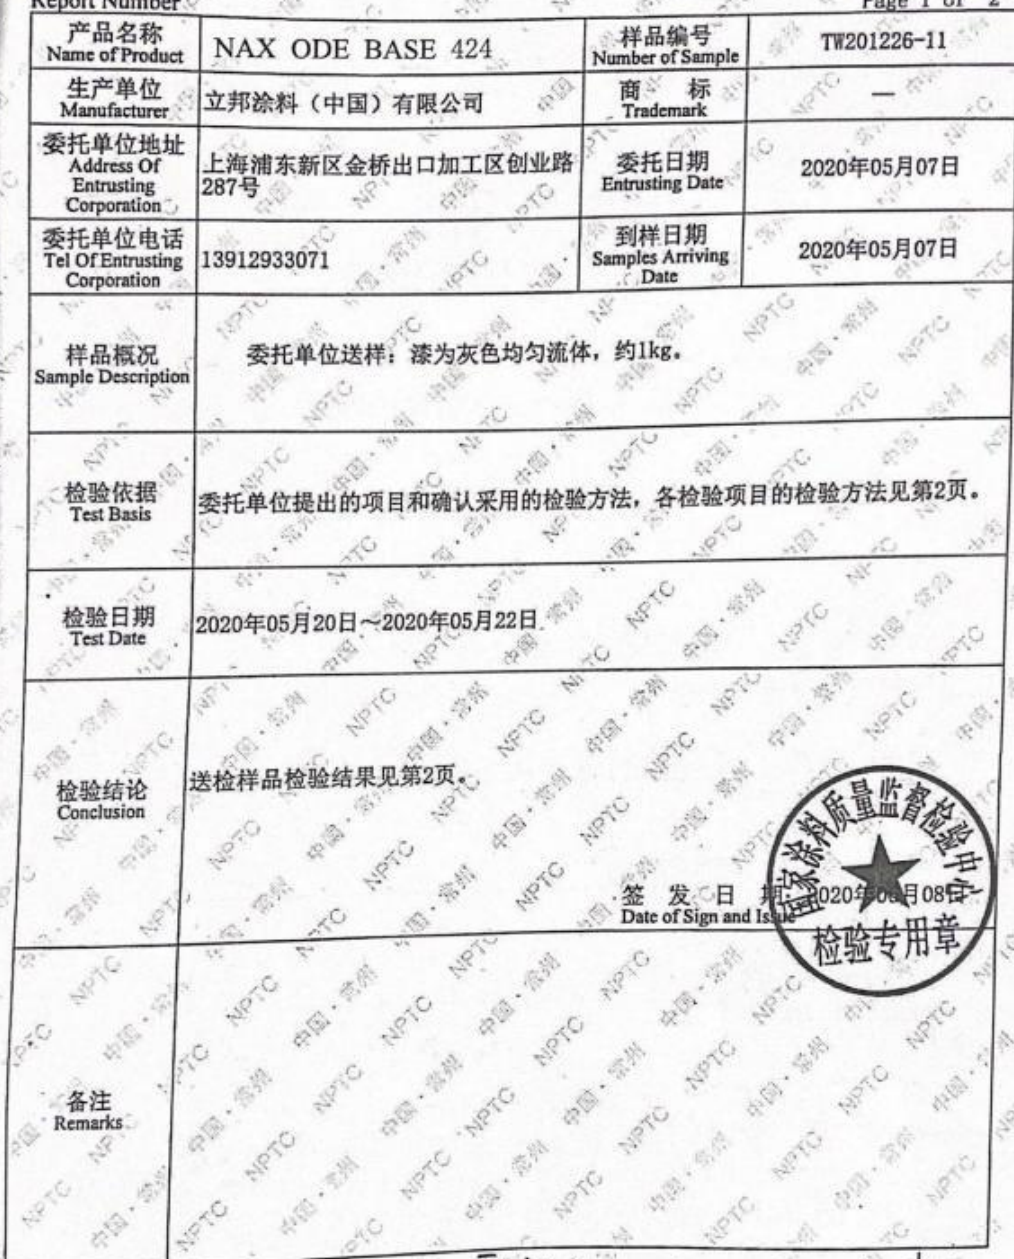 Report Number
Page 1 of 2
产品名称
Name of Product
NAX ODE BASE 424
样品编号
Number of Sample
TW201226-11
生产单位
Manufacturer
立邦涂料（中国）有限公司
商 标
Trademark
—
委托单位地址
Address Of
Entrusting
Corporation
上海浦东新区金桥出口加工区创业路
287号
委托日期
Entrusting Date
2020年05月07日
委托单位电话
Tel Of Entrusting
Corporation
13912933071
到样日期
Samples Arriving
Date
2020年05月07日
样品概况
Sample Description
委托单位送样：漆为灰色均匀流体，约1kg。
检验依据
Test Basis
委托单位提出的项目和确认采用的检验方法，各检验项目的检验方法见第2页。
检验日期
Test Date
2020年05月20日～2020年05月22日
检验结论
Conclusion
送检样品检验结果见第2页。
签 发 日 期：
Date of Sign and Issue
国家涂料质量监督检验中心
检验专用章
备注
Remarks
NPTC
中国·常州